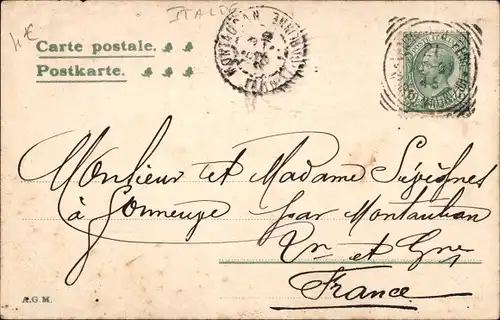 4€
ITALIE
Carte postale.
Postkarte.
MONTAUBAN
Monsieur et Madame
à
par Montauban
Tn et Gne
France
A.G.M.